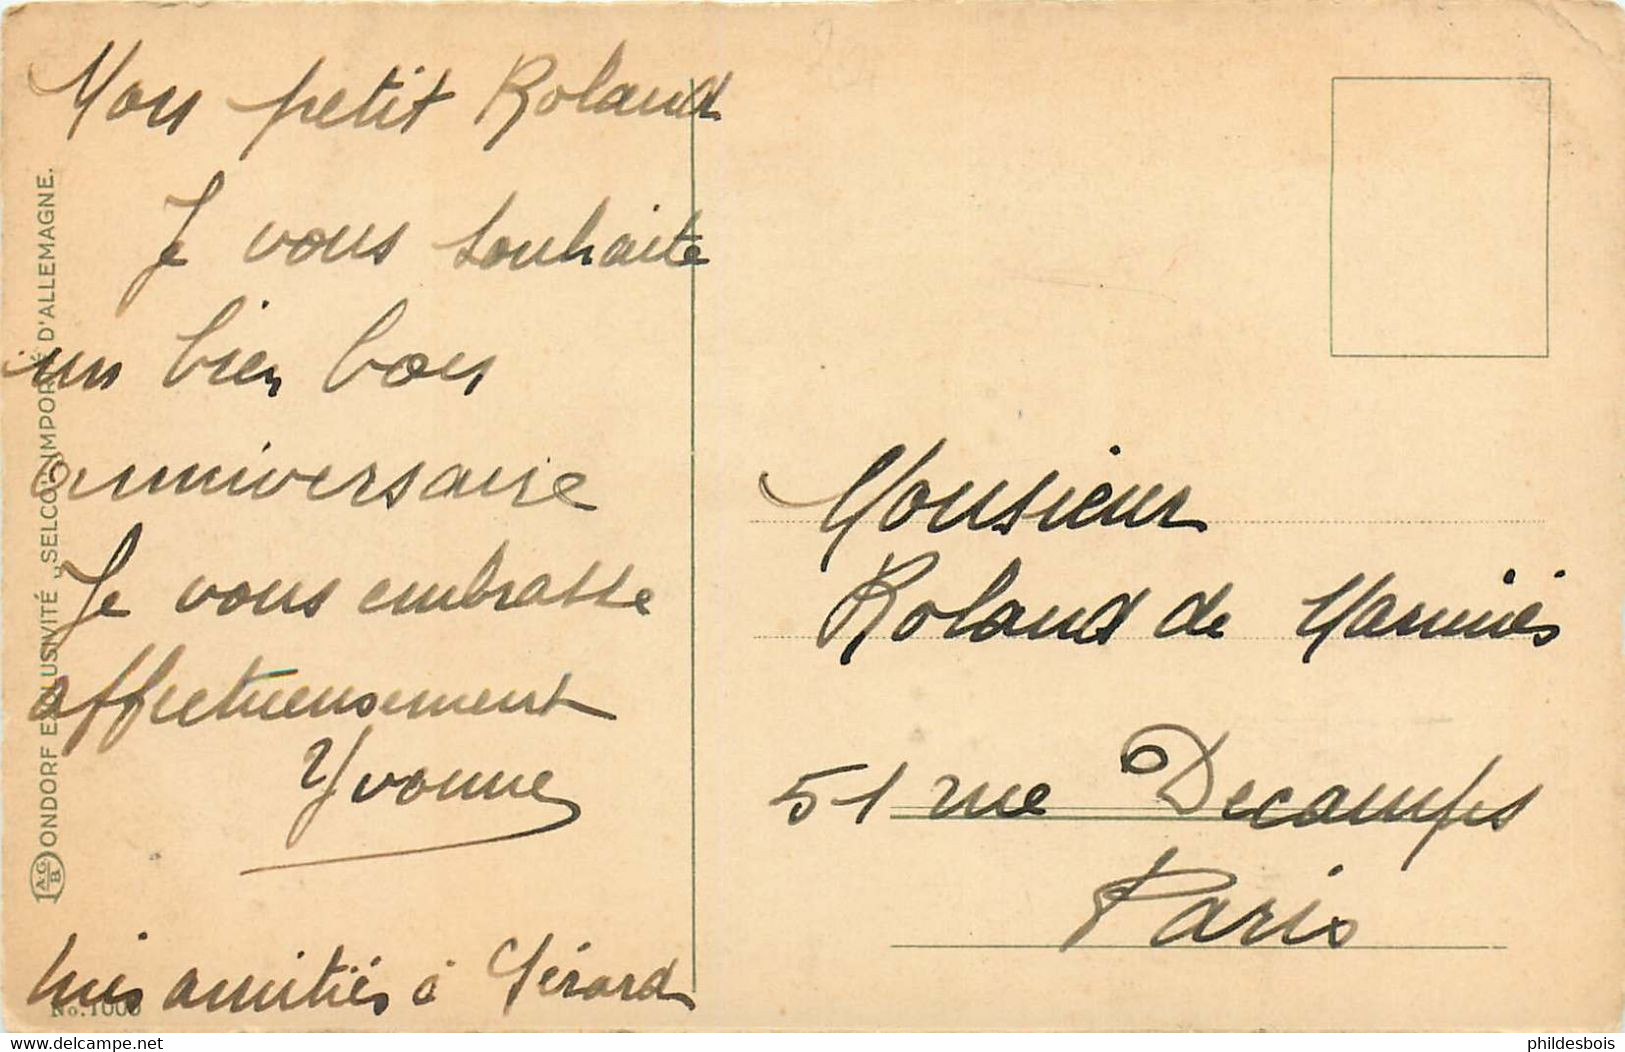 Mon petit Roland
Je vous souhaite
un bien bon
anniversaire
Je vous embrasse
affectueusement
Yvonne
mes amitiés à Gérard
Monsieur
Roland de
51 rue Decamps
Paris
A.G.
B.
ONDORF EXCLUSIVITÉ „SELCO” IMPORTÉ D'ALLEMAGNE.
No. 1000
delcampe.net
phildesbois